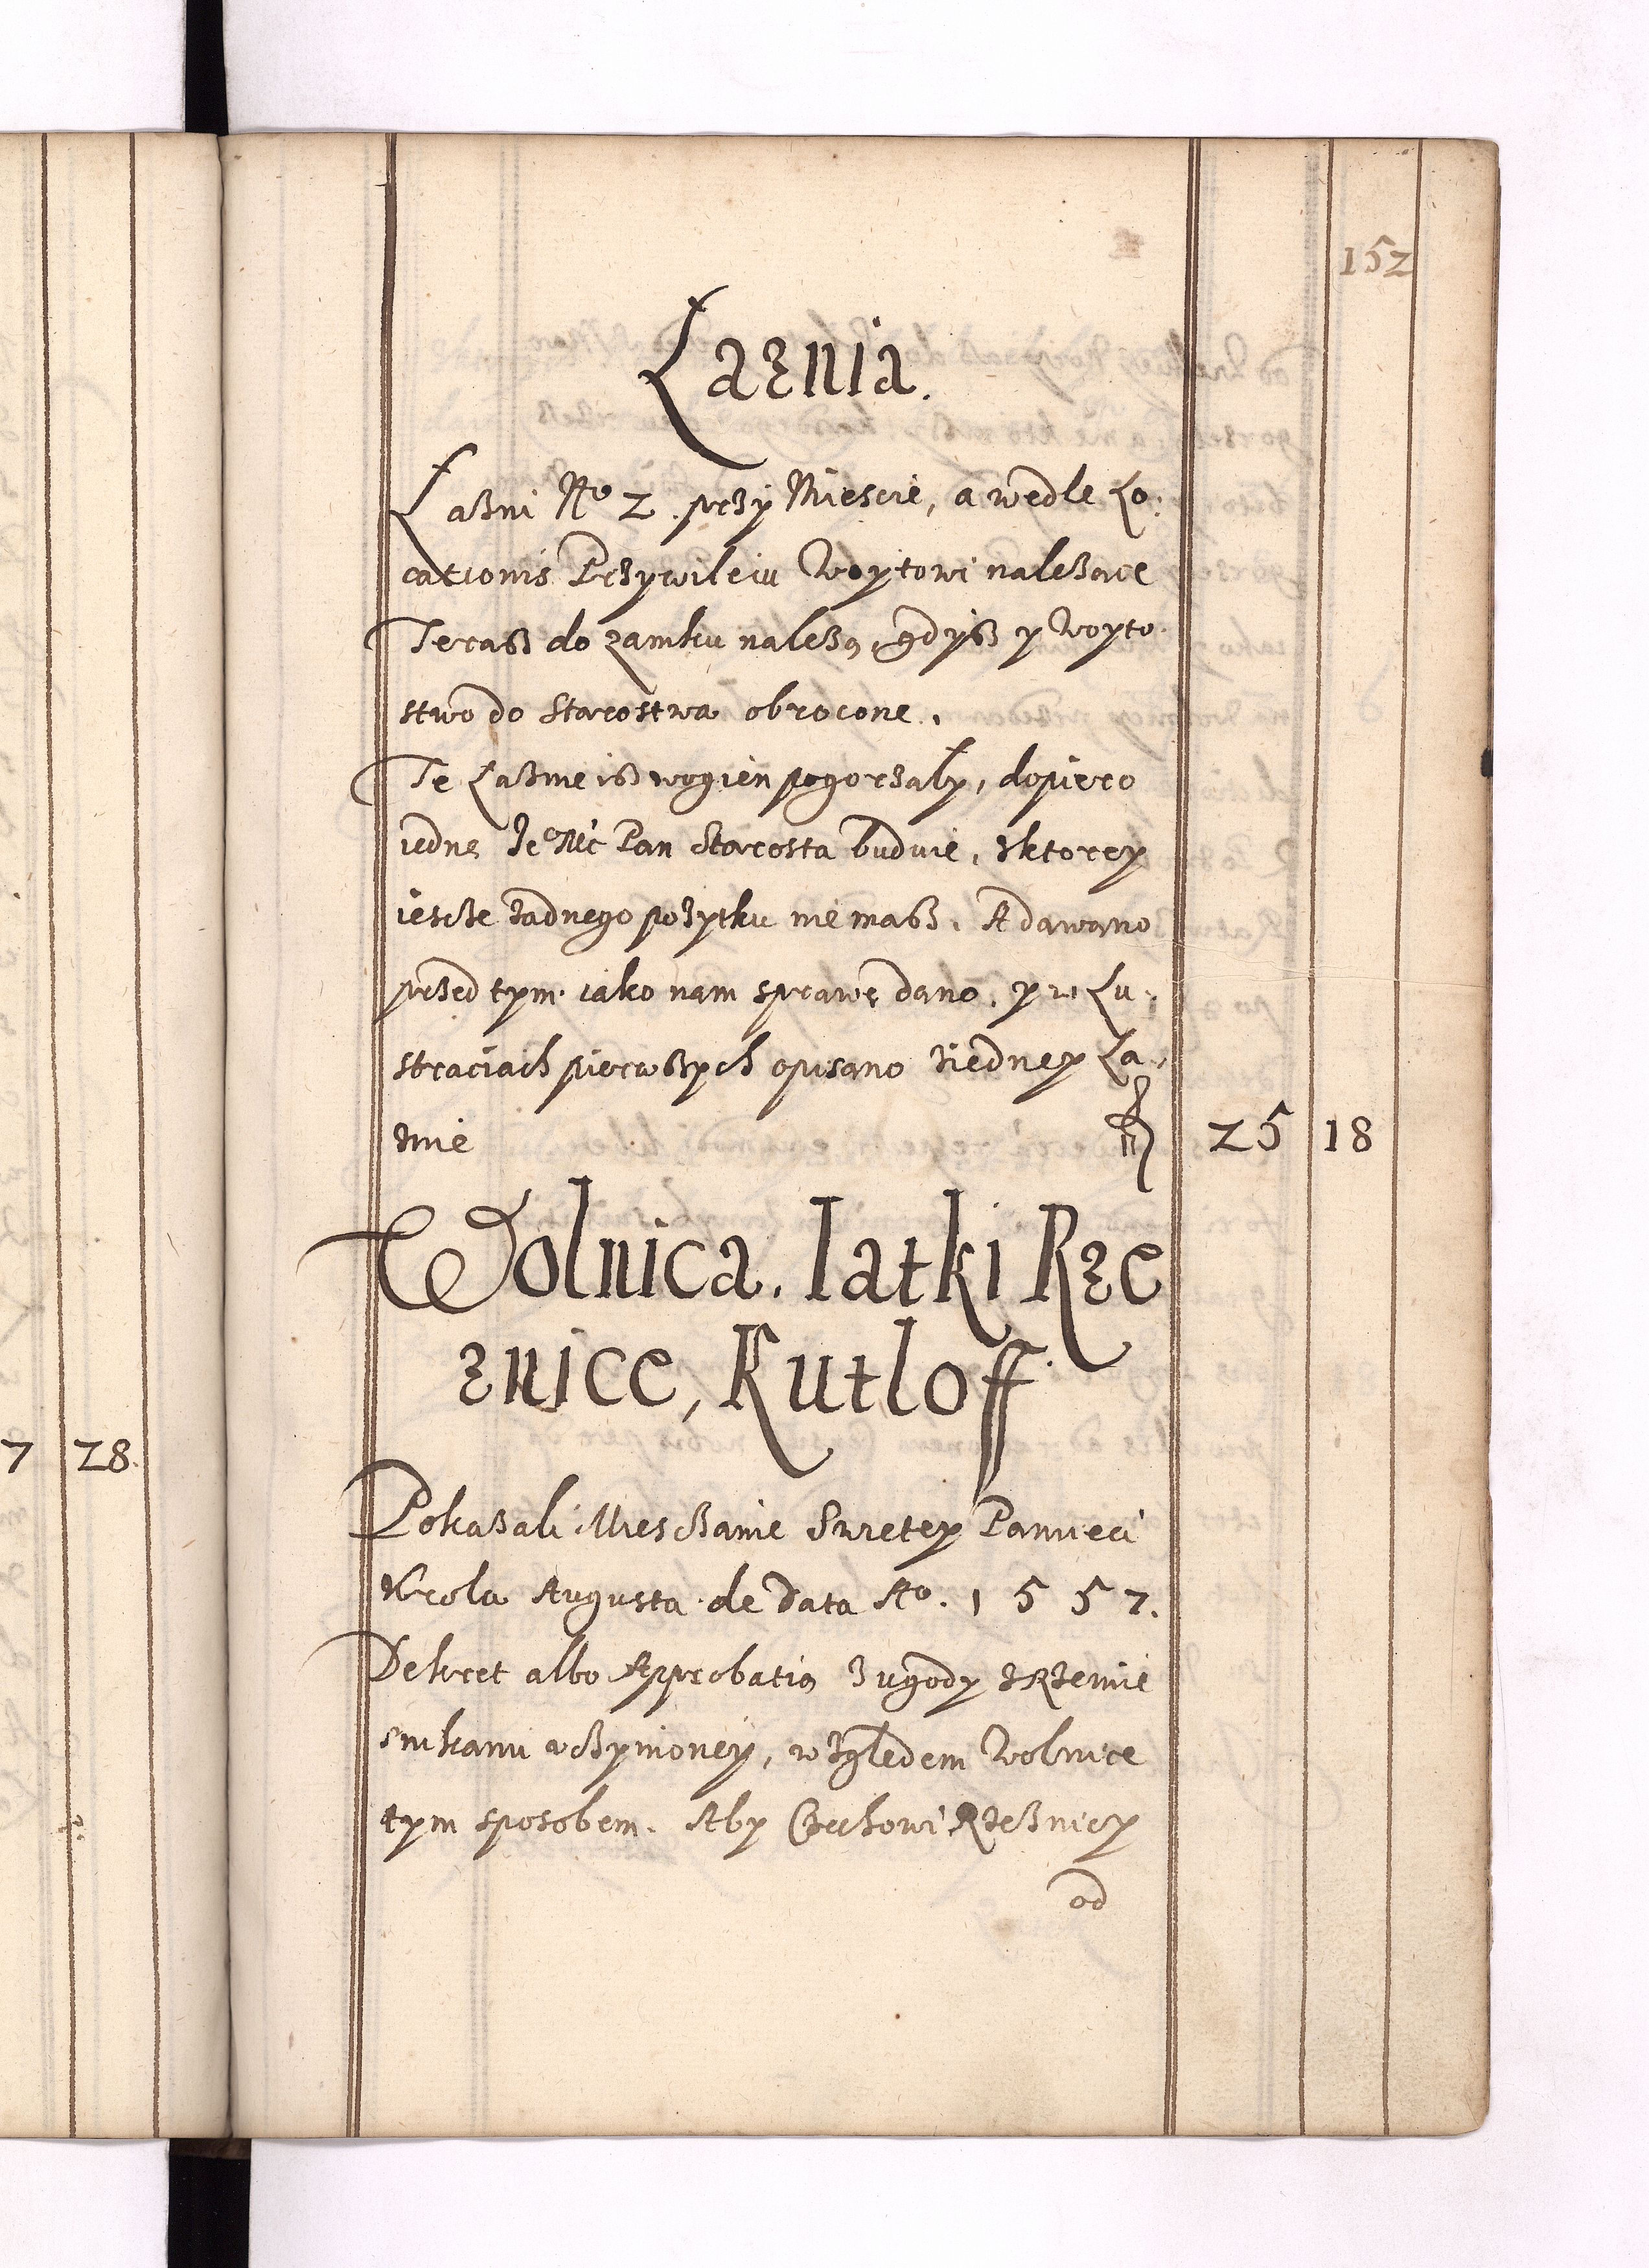 152
Łaznia.
Łaźni No 2. przy Miescie, a wedle Lo:
cationis Przywileiu Woytowi należące
Teraß do zamku należą, gdyß y Woyto
stwo do Starostwa obrocone.
Te Łaźnie iß w ogien pogorzały, dopiero
iednę Je° Mć Pan Starosta buduie, z ktorey
iescze zadnego pożytku nie maß. A dawano
przed tym iako nam sprawę dano, y w Lu:
straciach pierwßych opisano z iedney Ła:
znie 25 18
Wolnica. Iatki Rze
znice, Kutloff
7 28.
Pokazali Miesczanie Swietey Pamieci
Krola Augusta de Data Ao. 1557.
Dekret albo Approbatią z ugody z Rzemie
snikami uczynioney, względem Wolnice
tym sposobem. Aby Cechowi Rzeźnicy
od